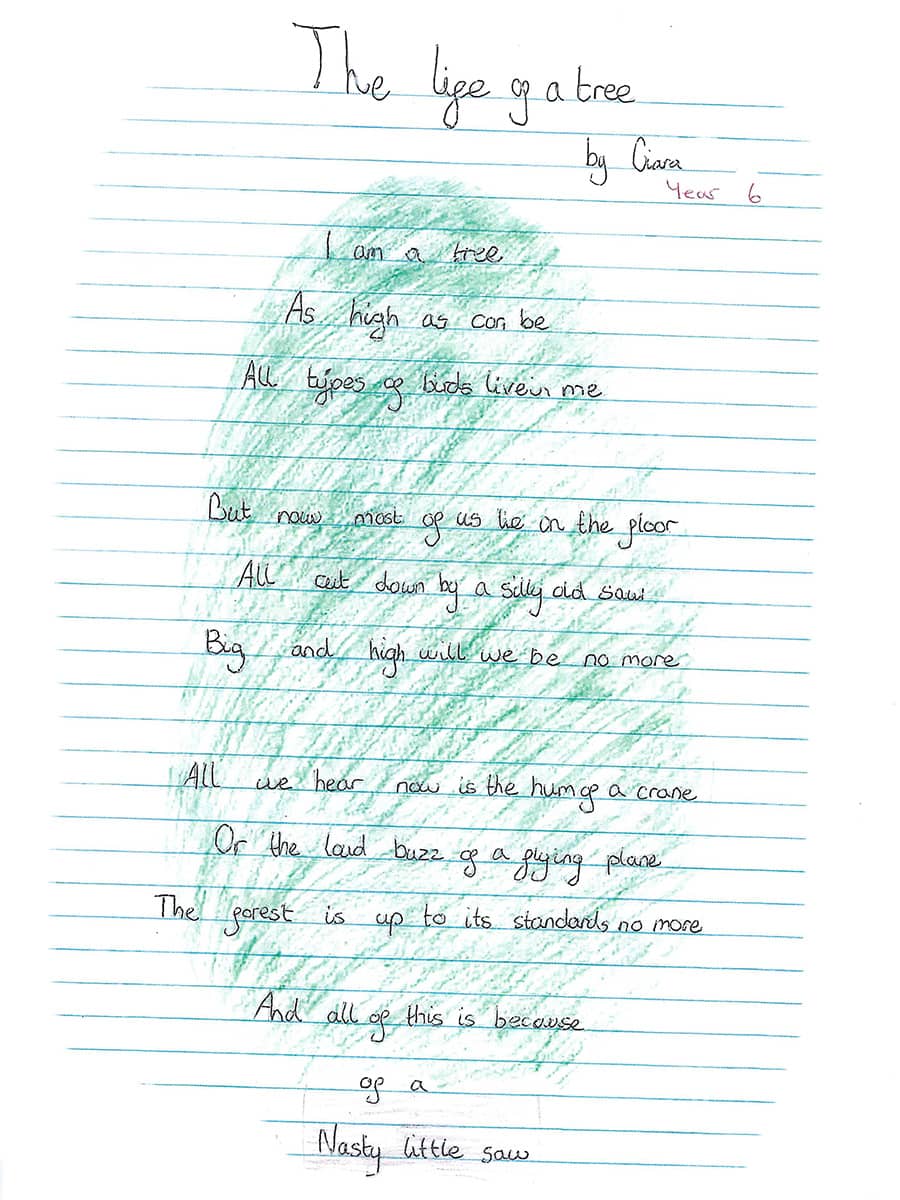 The life of a tree
by Ciara
Year 6
I am a tree
As high as can be
All types of birds live in me
But now most of us lie on the floor
All cut down by a silly old saw
Big and high will we be no more
All we hear now is the hum of a crane
Or the loud buzz of a flying plane
The forest is up to its standards no more
And all of this is because
of a
Nasty little saw